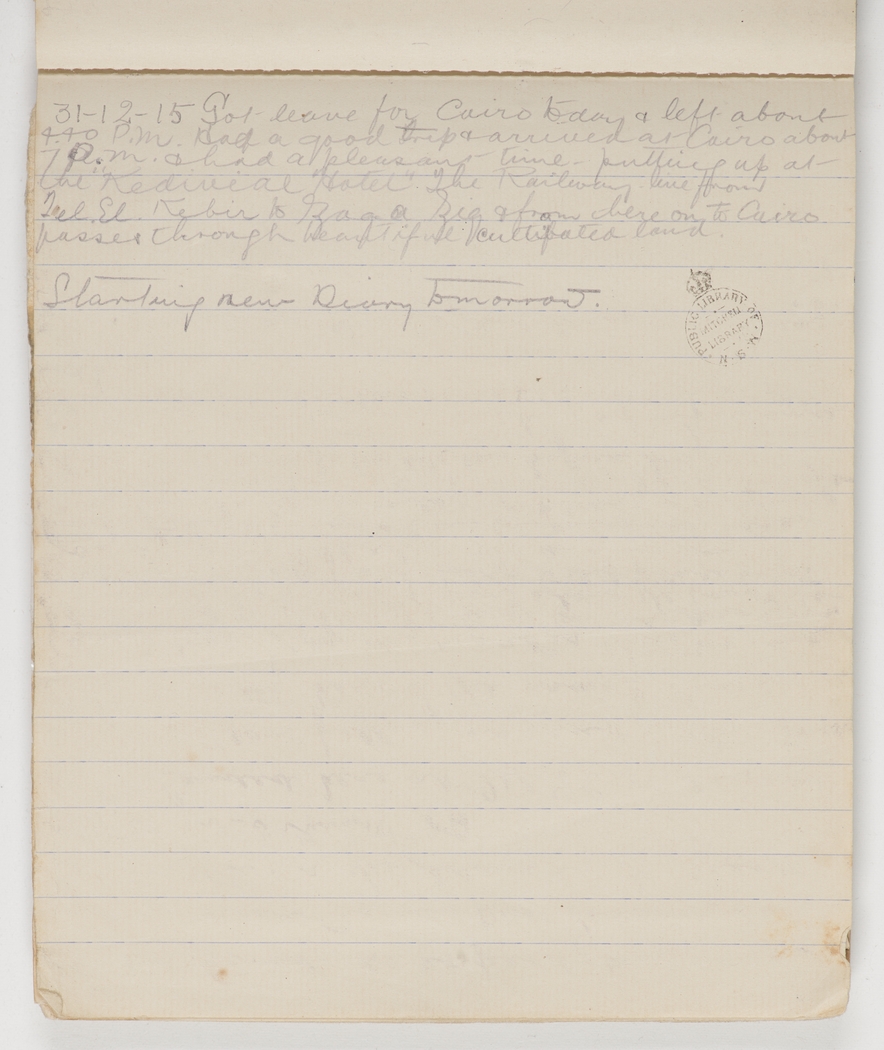 31-12-15 Got leave for Cairo today & left about
4.40 P.M. Had a good trip & arrived at Cairo about
7 P.M. & had a pleasant time - putting up at
the "Kedivieal Hotel". The Railway line from
Tel. El. Kebir to Zag a Zig & from there on to Cairo
passes through beautiful cultivated land.
Starting new Diary tomorrow.
PUBLIC LIBRARY OF N.S.W.
MITCHELL
LIBRARY